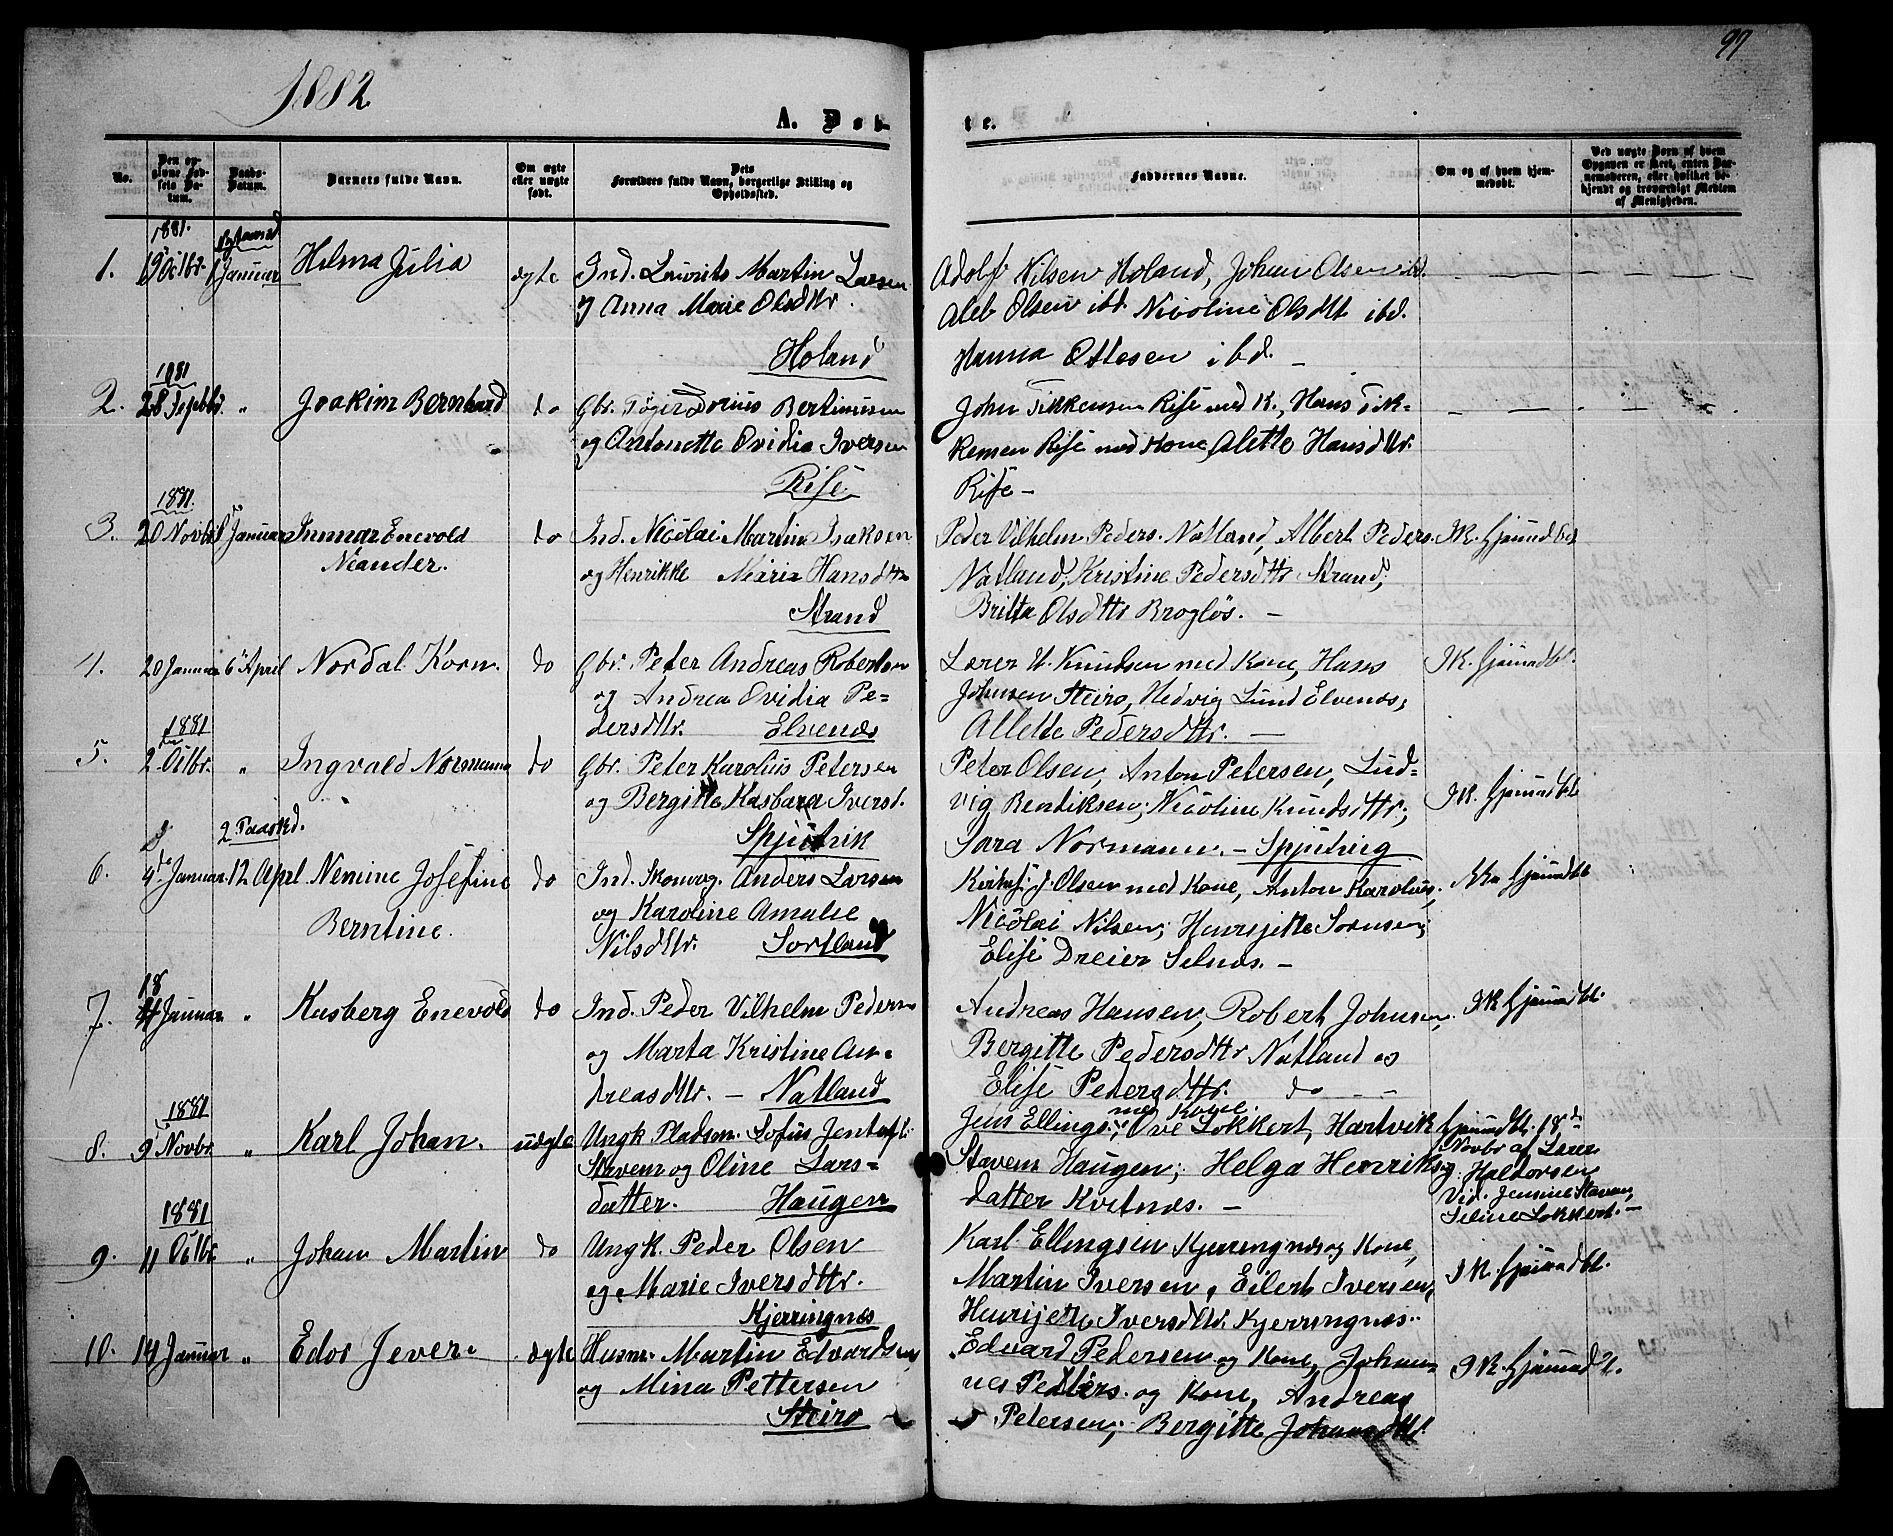 1882
97
A. Døb-
te.
No.
Den opgivne Fødsels Datum.
Daabs-Datum.
Barnets fulde Navn.
Om ægte eller uægte født.
Dets Forældres fulde Navn, borgerlige Stilling og Opholdssted.
Faddernes Navne.
Om og af hvem hjemmedøbt.
Ved uægte Børn af hvem Opgaven er skeet, enten Barnemoderen, eller hvilket bekjendt og troværdigt Medlem af Menigheden.
1. 1881. 19 Octbr. 1 Januar Hilma Julia ægte Ind. Laurits Martin Larsen
og Anna Marie Olsdttr.
Holand
Adolf Nilsen Holand, Johan Olsen ibd.
Olsen ibd. Nicoline Olsdtt ibd.
Hanna Ottesen ibd. –
2. 1881 28 Septbr. " Joakim Bernhard do Gbr. Bertinusen
og Antonette Ovidia Iversen
Rise
John Rise med K., Hans
Rise med Kone, Alette Hansdttr.
Rise –
3. 1881. 20 Novbr. 8 Januar Inmar Enevold
Neander.
do Ind. Nicolai Martin Isaksen
og Henrikke Maria Hansdttr
Strand
Peder Vilhelm Peders. Natland, Albert Peders.
Natland, Kristine Pedersdttr Strand,
Britta Olsdttr Brogløs. –
IK. hjemmdbt
4. 20 Januar 6 April Nordal Korn. do Gbr. Peter Andreas Robertsen
og Andrea Ovidia Pe-
dersdttr. Elvenæs
Lærer Knudsen med Kone, Hans
Johnsen Steiro, Hedvig Lund Elvenæs,
Allette Pedersdttr. –
IK. hjemmdbt.
5. 1881 2 Octbr. " Ingvald Normann do Gbr. Peter Karolius Petersen
og Bergitte Kasbara Iversd.
Spjutvik
Peter Olsen, Anton Petersen, Lud-
vig Bendiksen; Nicoline Knudsdttr;
Sara Normann. – Spjutvig
IK. hjemmdbt
6. 4de Januar. 2 Paaskd. 12 April Nemine Josefine
Berntine.
do Ind. Skomag. Anders Larsen
og Karoline Amalie
Nilsdttr. Sortland
J. Olsen med Kone, Anton Karolius,
Nicolai Nilsen; Hensjette Sørnsen;
Elise Dreier Selnes. –
hjemmdbt
7. 18 Januar " Kasberg Enevold do Ind. Peder Vilhelm Peders
og Marta Kristine An-
dreasdttr. – Natland
Andreas Hansen, Robert Johnsen,
Bergitte Pedersdttr Natland og
Elise Pedersdttr. do – –
IK hjemmdbt.
8. 1881 9 Novbr. " Karl Johan. uægte Ungk Pladsm. Sofus
Stavem og Oline Lars-
datter. Haugen
Jens Ellings. med Kone, Ove Lokkert, Hartvik
Stavem Haugen; Helga Henriks
datter Kvitnæs. –
hjemmdbt. 18de
Novbr af Lærer
Haldorsen
Vid. Jensine Stavem,
Seline Lokkert. –
9. 1881 11 Octbr " Johan Martin do Ungk. Peder Olsen
og Marie Iversdttr.
Kjerringnæs
Karl Ellingsen Kjerringnæs og Kone,
Martin Iversen, Eilert Iversen,
Henrijette Iversdttr. Kjerringnæs.
IK. hjemmdbt.
10. 14 Januar " Edor Jever ægte Husm. Martin Edvardsen
og Mina Pettersen
Steiro
Edvard Pedersen og Kone, Johan-
nes Peders. og Kone, Andreas
Petersen; Bergitte Johansdttr.
IK. hjemmdbt.